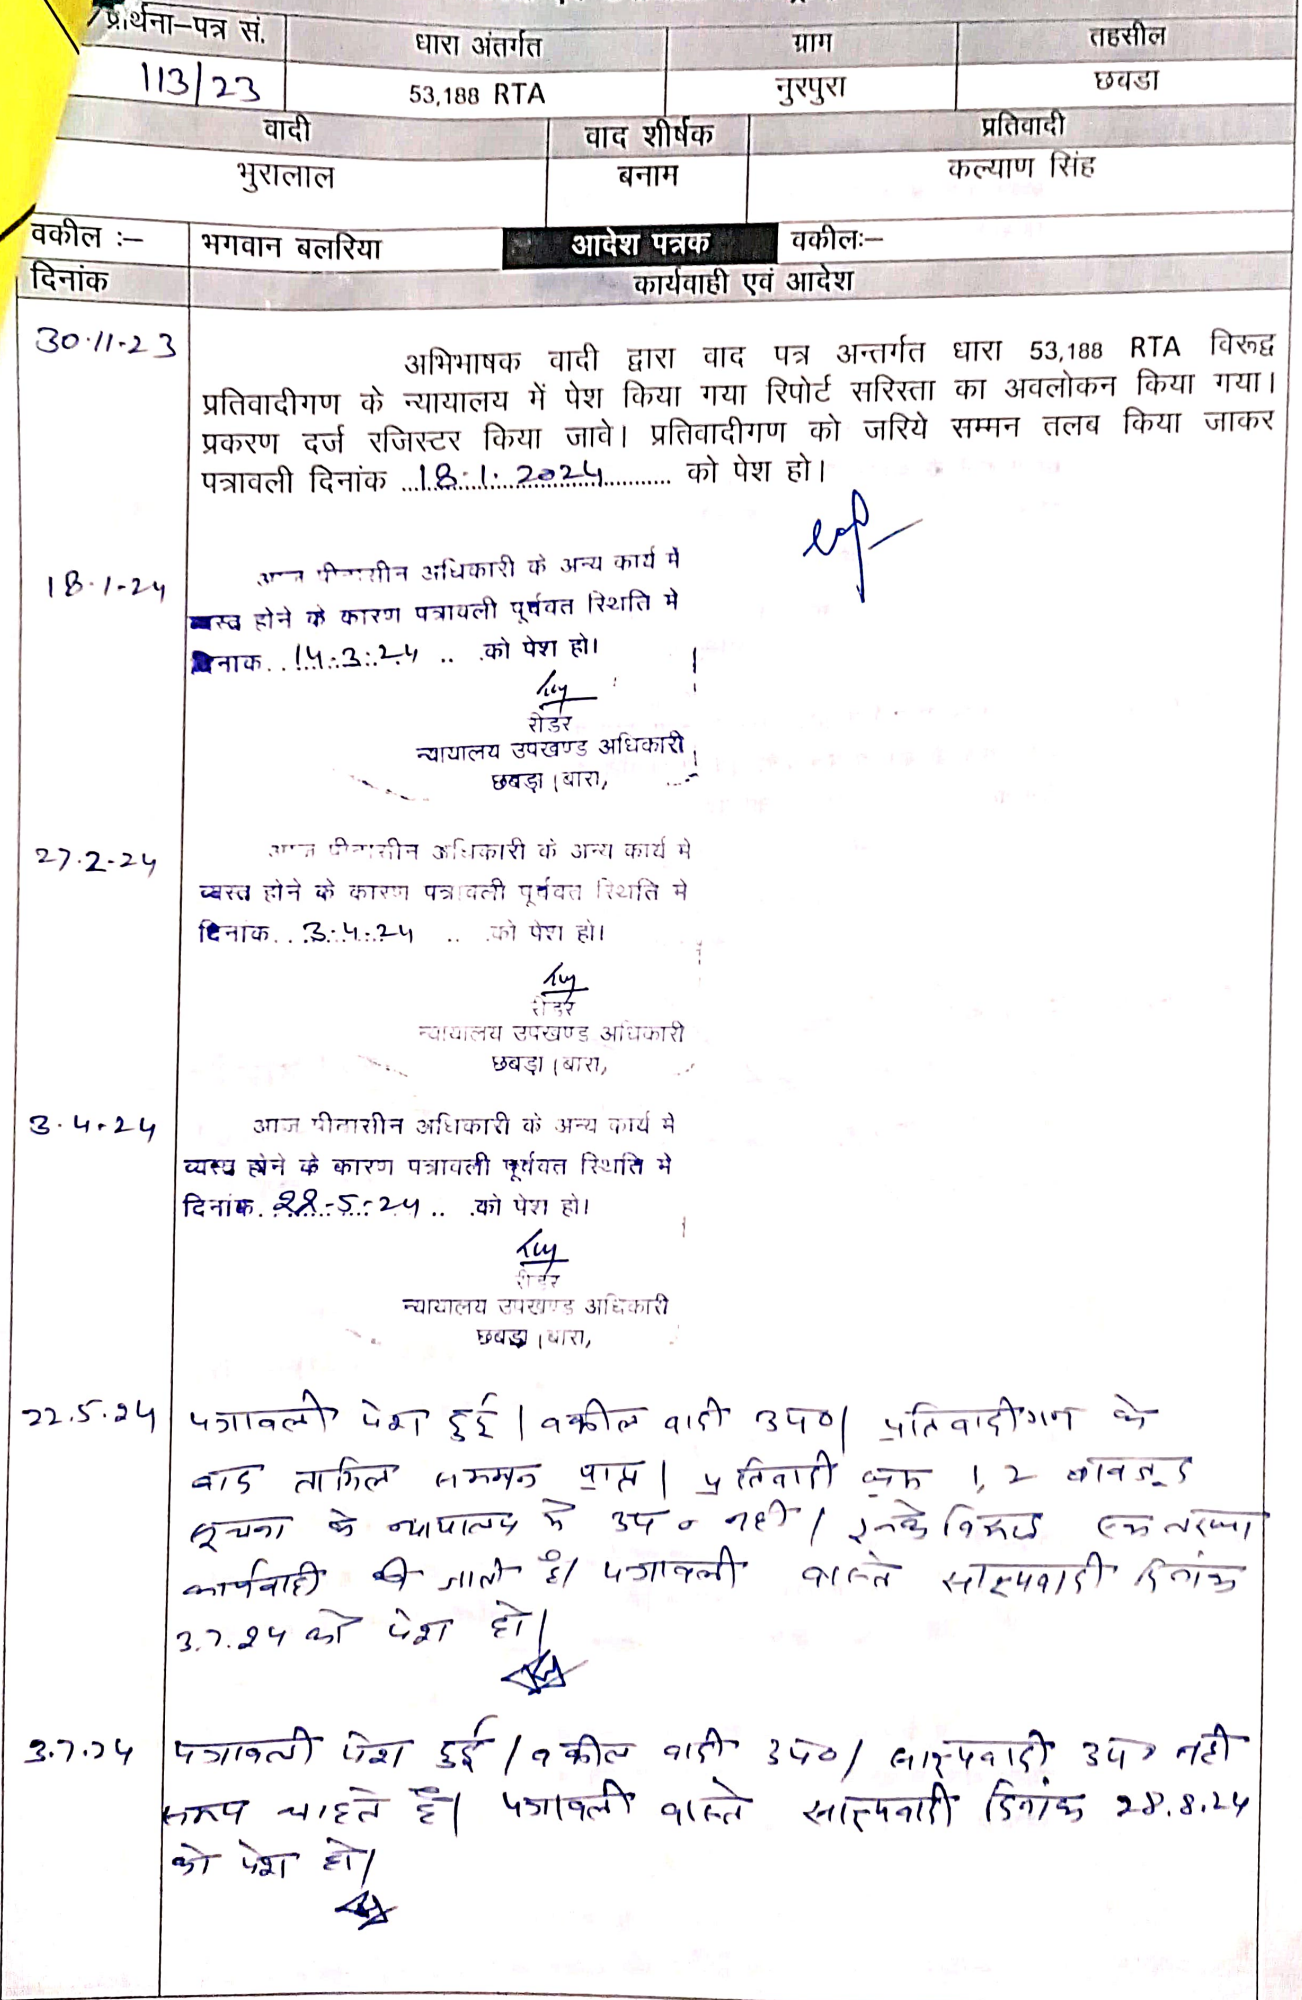 प्रार्थना–पत्र सं. धारा अंतर्गत ग्राग तहसील
113/23 53,188 RTA नुरपुरा छबडा
वादी वाद शीर्षक प्रतिवादी
भुरालाल बनाम कल्याण सिंह
वकील :– भगवान बलरिया आदेश पत्रक वकीलः–
दिनांक कार्यवाही एवं आदेश
30.11.23
अभिभाषक वादी द्वारा वाद पत्र अन्तर्गत धारा 53,188 RTA विरूद्व
प्रतिवादीगण के न्यायालय में पेश किया गया रिपोर्ट सरिस्ता का अवलोकन किया गया।
प्रकरण दर्ज रजिस्टर किया जावे। प्रतिवादीगण को जरिये सम्मन तलब किया जाकर
पत्रावली दिनांक ...18.1.2024... को पेश हो।
18.1.24 आज पीठासीन अधिकारी के अन्य कार्य में
व्यस्त होने के कारण पत्रावली पूर्ववत स्थिति मे
दिनाक. . 14.3.24 .. .को पेश हो।
रीडर
न्यायालय उपखण्ड अधिकारी
छबड़ा (बारा,
27.2.24 आज पीठासीन अधिकारी के अन्य कार्य मे
व्यस्त होने के कारण पत्रावली पूर्ववत स्थिति मे
दिनांक. . 3.4.24 .. .को पेश हो।
रीडर
न्यायालय उपखण्ड अधिकारी
छबड़ा (बारा,
3.4.24 आज पीठासीन अधिकारी के अन्य कार्य मे
व्यस्त होने के कारण पत्रावली पूर्ववत स्थिति मे
दिनांक. 22.5.24 .. .को पेश हो।
रीडर
न्यायालय उपखण्ड अधिकारी
छबड़ा (बारा,
22.5.24 पत्रावली पेश हुई। वकील वादी उप०। प्रतिवादीगन के
बाद तामिल सम्मन प्राप्त। प्रतिवादी क्रम 1, 2 बावजूद
सूचना के न्यायालय मे उप० नही। इनके विरूद्ध एक तरफा
कार्यवाही की जाती है। पत्रावली वास्ते साक्ष्यवादी दिनांक
3.7.24 को पेश हो।
3.7.24 पत्रावली पेश हुई। वकील वादी उप०। साक्ष्यवादी उप० नही
समय चाहते है। पत्रावली वास्ते साक्ष्यवादी दिनांक 28.8.24
को पेश हो।